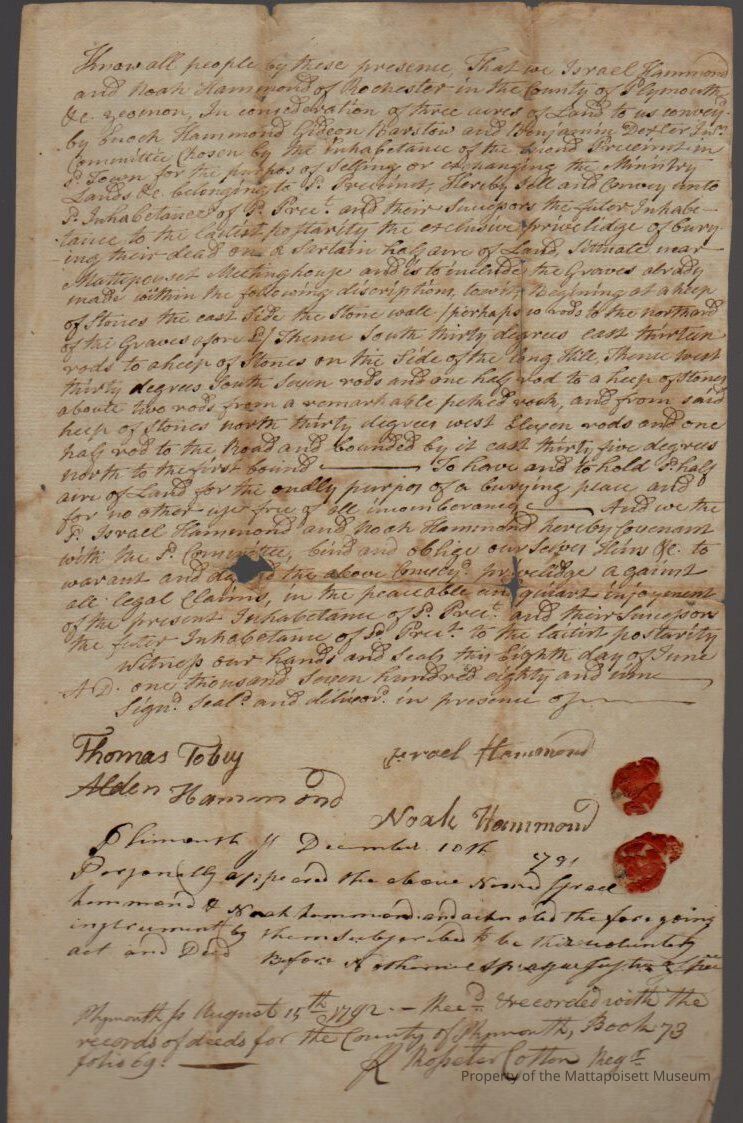 Know all people by these presence, That we Israel Hammond
and Noah Hammond of Rochester in the County of Plymouth
&c. yeomon, In consideration of three acres of Land to us convey.d
by Enoch Hammond Gideon Barstow and Benjamin Dexter Jur.
Committee Chosen by the Inhabetance of the Second Precennt in
Sd. Town for the purpos of Selling or exchanging the Ministry
Lands &c. belonging to Sd. Precinct, Hereby Sell and Convey unto
Sd. Inhabetance of Sd. Prect. and their Sucessors the futer Inhabe-
tance to the latest postarity the exclusive priveledge of bury-
ing their dead on a Sertain half acre of Land, Sittuate near
Mattapoiset Meetinghouse and is to include the Graves alrady
made within the following discription, towit, Begining at a heep
of Stones the east Side the Stone wall /perhaps rods to the northard
of the Graves afore Sd/ Thence South thirty degrees east thirteen
rods to a heep of Stones on the Side of the long Hill, Thence west
thirty degrees South Seven rods and one half rod to a heep of Stones
aboute two rods from a remarkable peked rock, and from said
heep of Stones north thirty degrees west Eleven rods and one
half rod to the Road and bounded by it east thirty five degrees
north to the first bound — To have and to hold Sd. half
acre of Land for the ondly purpos of a burying place and
for no other use free of all incomberance — And we the
Sd. Israel Hammond and Noah Hammond hereby Covenant
with the Sd. Committee, bind and oblige our Selves Heirs &c. to
warant and de d the above Convey.d priveledge against
all legal Claims, in the peaceable an quiart injoyment
of the present Inhabetance of Sd. Prect. and their Sucessors
the futer Inhabetance of Sd. Prect. to the latest postarity
Witness our hands and Seals this Eighth day of June
AD. one thousand Seven hundred eighty and nine
Sign.d Seal.d and deliver.d in presence of
Thomas Tobey
Israel Hammond
Alden Hammond
Noah Hammond
Plimouth Ss December 10th 1791
Personally appeared the above Named Israel
hammond & Noah hammond and acknoled the fore going
instrument by them subscribed to be their voluntary
act and Deed Before Nathaniel Sprague Justice of Peace
Plymouth Ss August 15th 1792. — Rec.d & recorded with the
records of deeds for the County of Plymouth, Book 73
folio 69.
Rosseter Cotton Regr.
Property of the Mattapoisett Museum